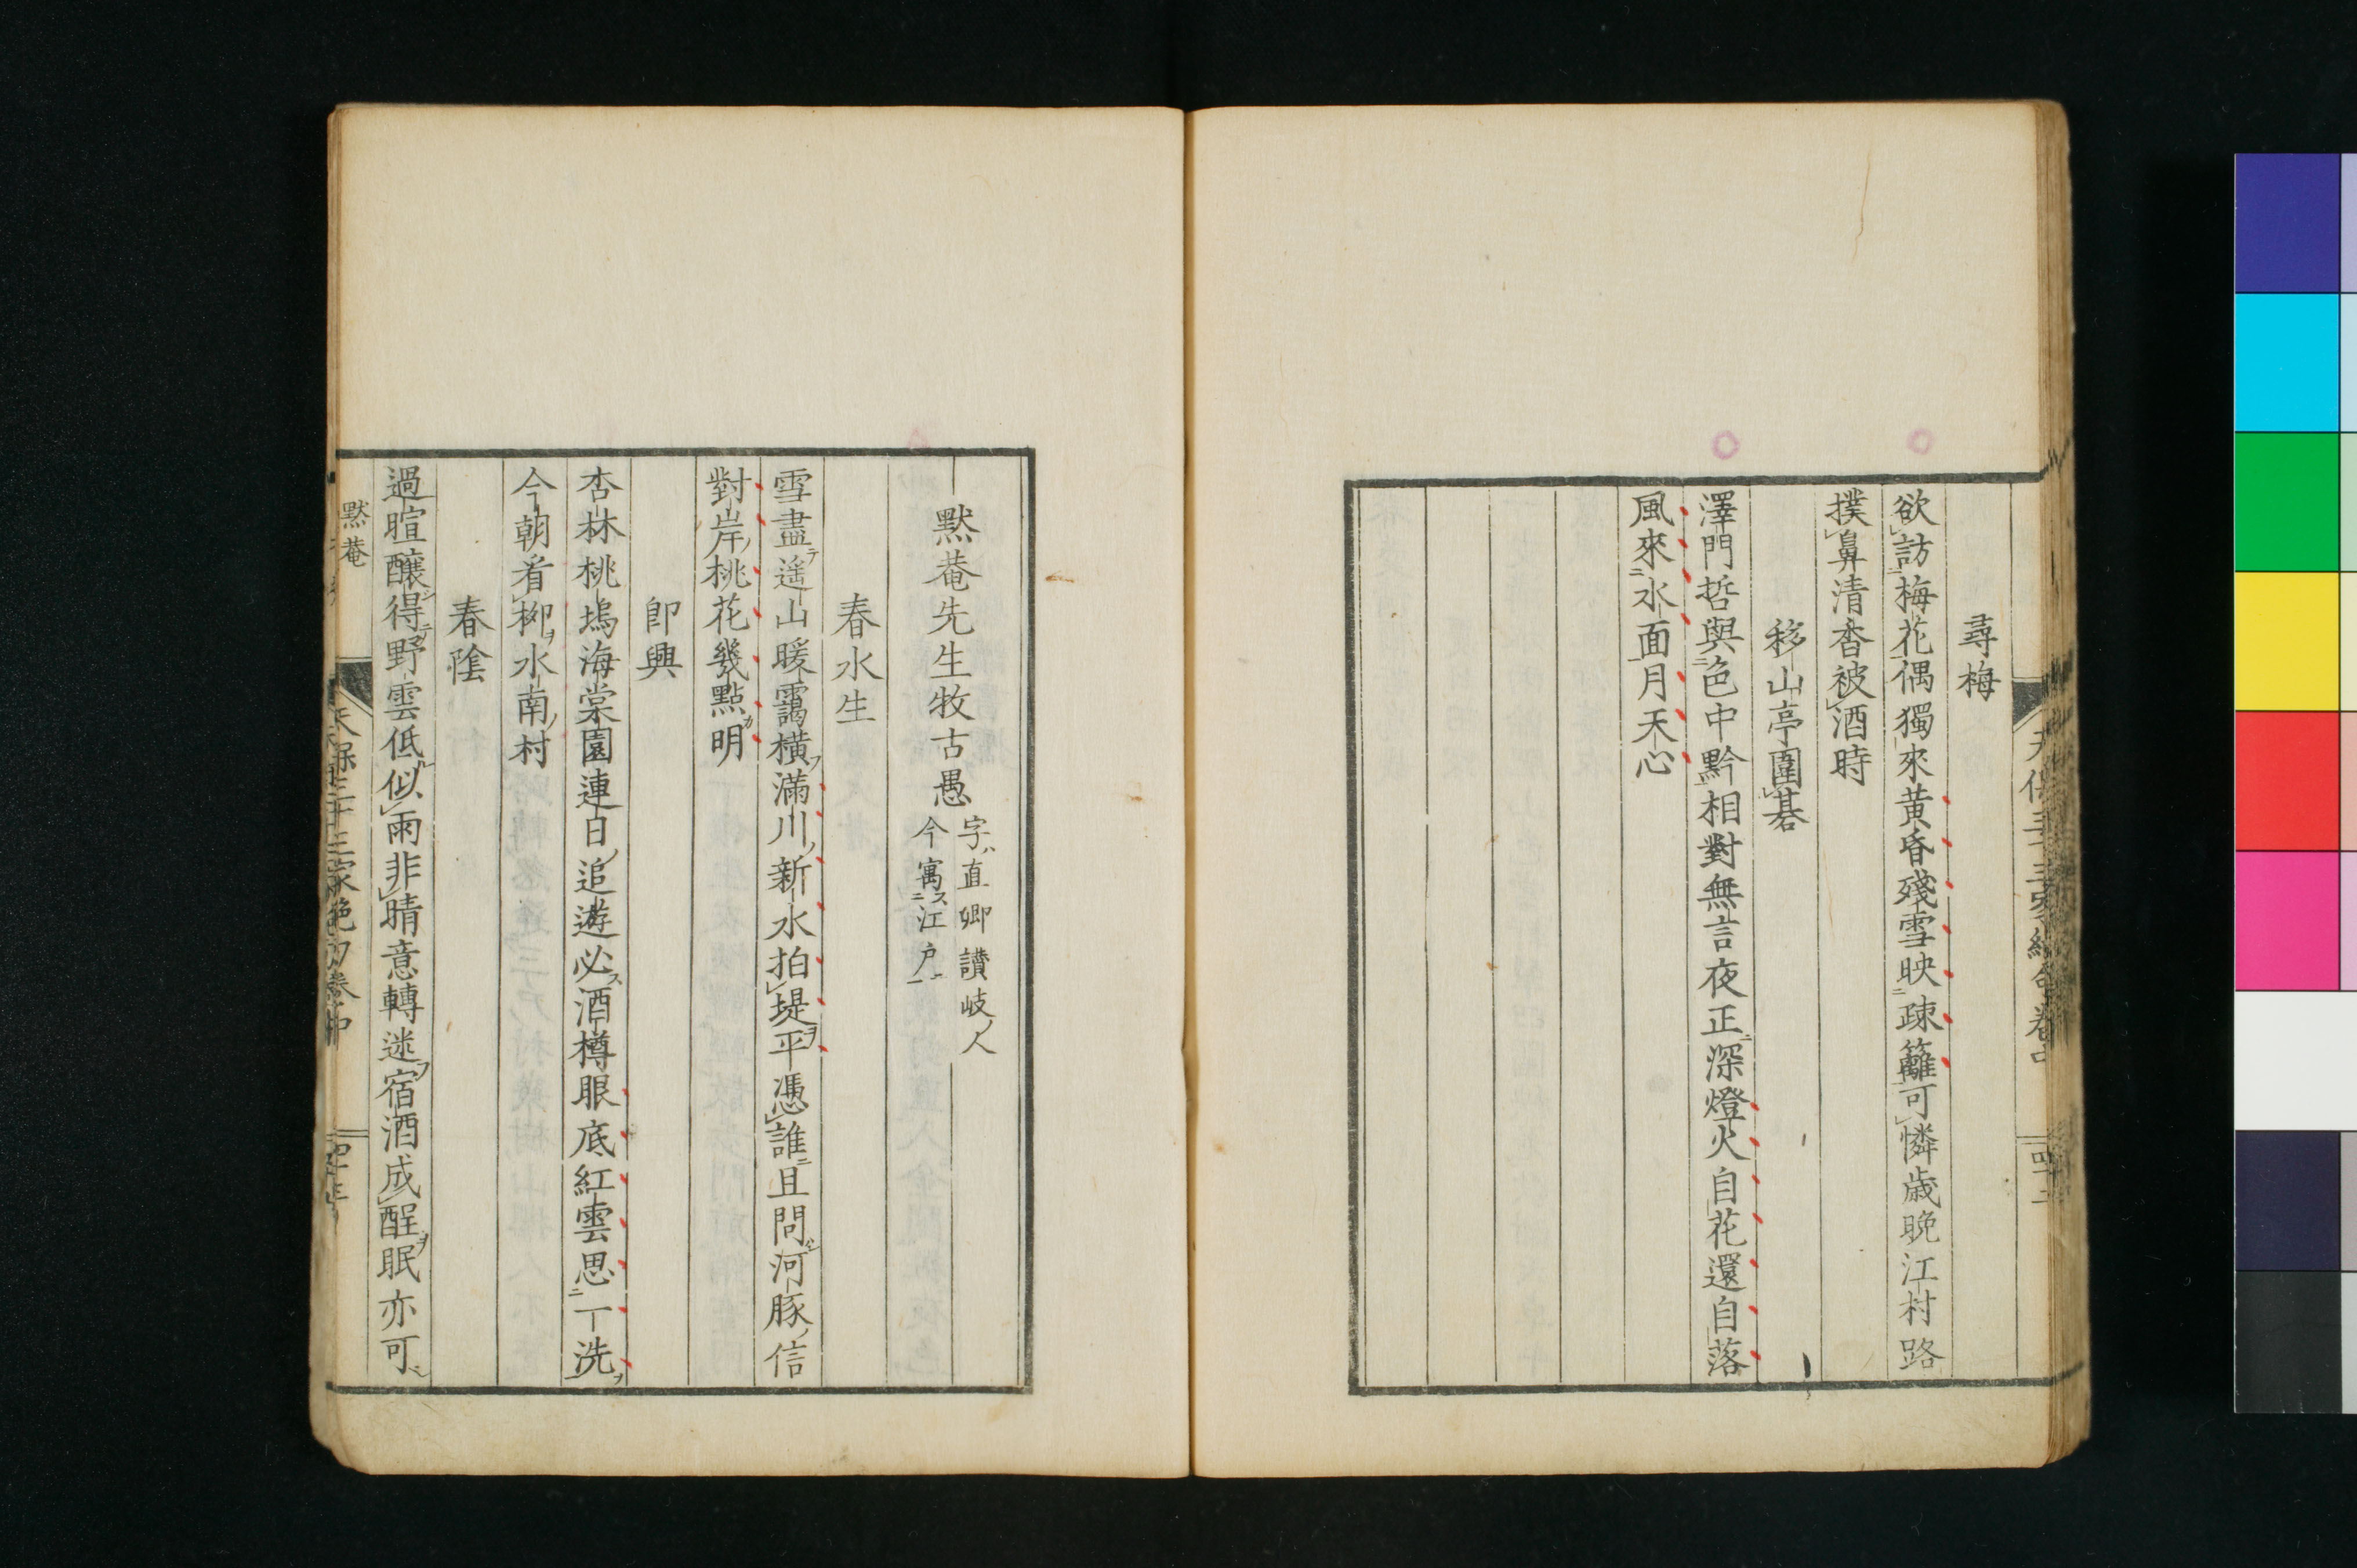 尋梅
欲訪梅花偶獨來黄昏殘雪映疎籬可憐歳晩江村路
撲鼻清香被酒時
移山亭圍碁
澤門晳與邑中黔相對無言夜正深燈火自花還自落
風來水面月天心
黙菴先生牧古愚
字ハ直卿讃岐ノ人
今寓ス江戸ニ
春水生
雪盡テ遥山暖靄横フ滿川ノ新水拍堤ヲ平憑誰ニ且問ン河豚ノ信
對岸ノ桃花幾點カ明
即興
杏林桃塢海棠園連日ノ追遊必ス酒樽眼底紅雲思ニ一洗ヲ
今朝看柳ヲ水南ノ村
春陰
過暄釀シ得テ野雲低ル似雨非晴意轉迷フ宿酒成酲ヲ眠亦可シ
黙菴
天保三十三家絶句卷中